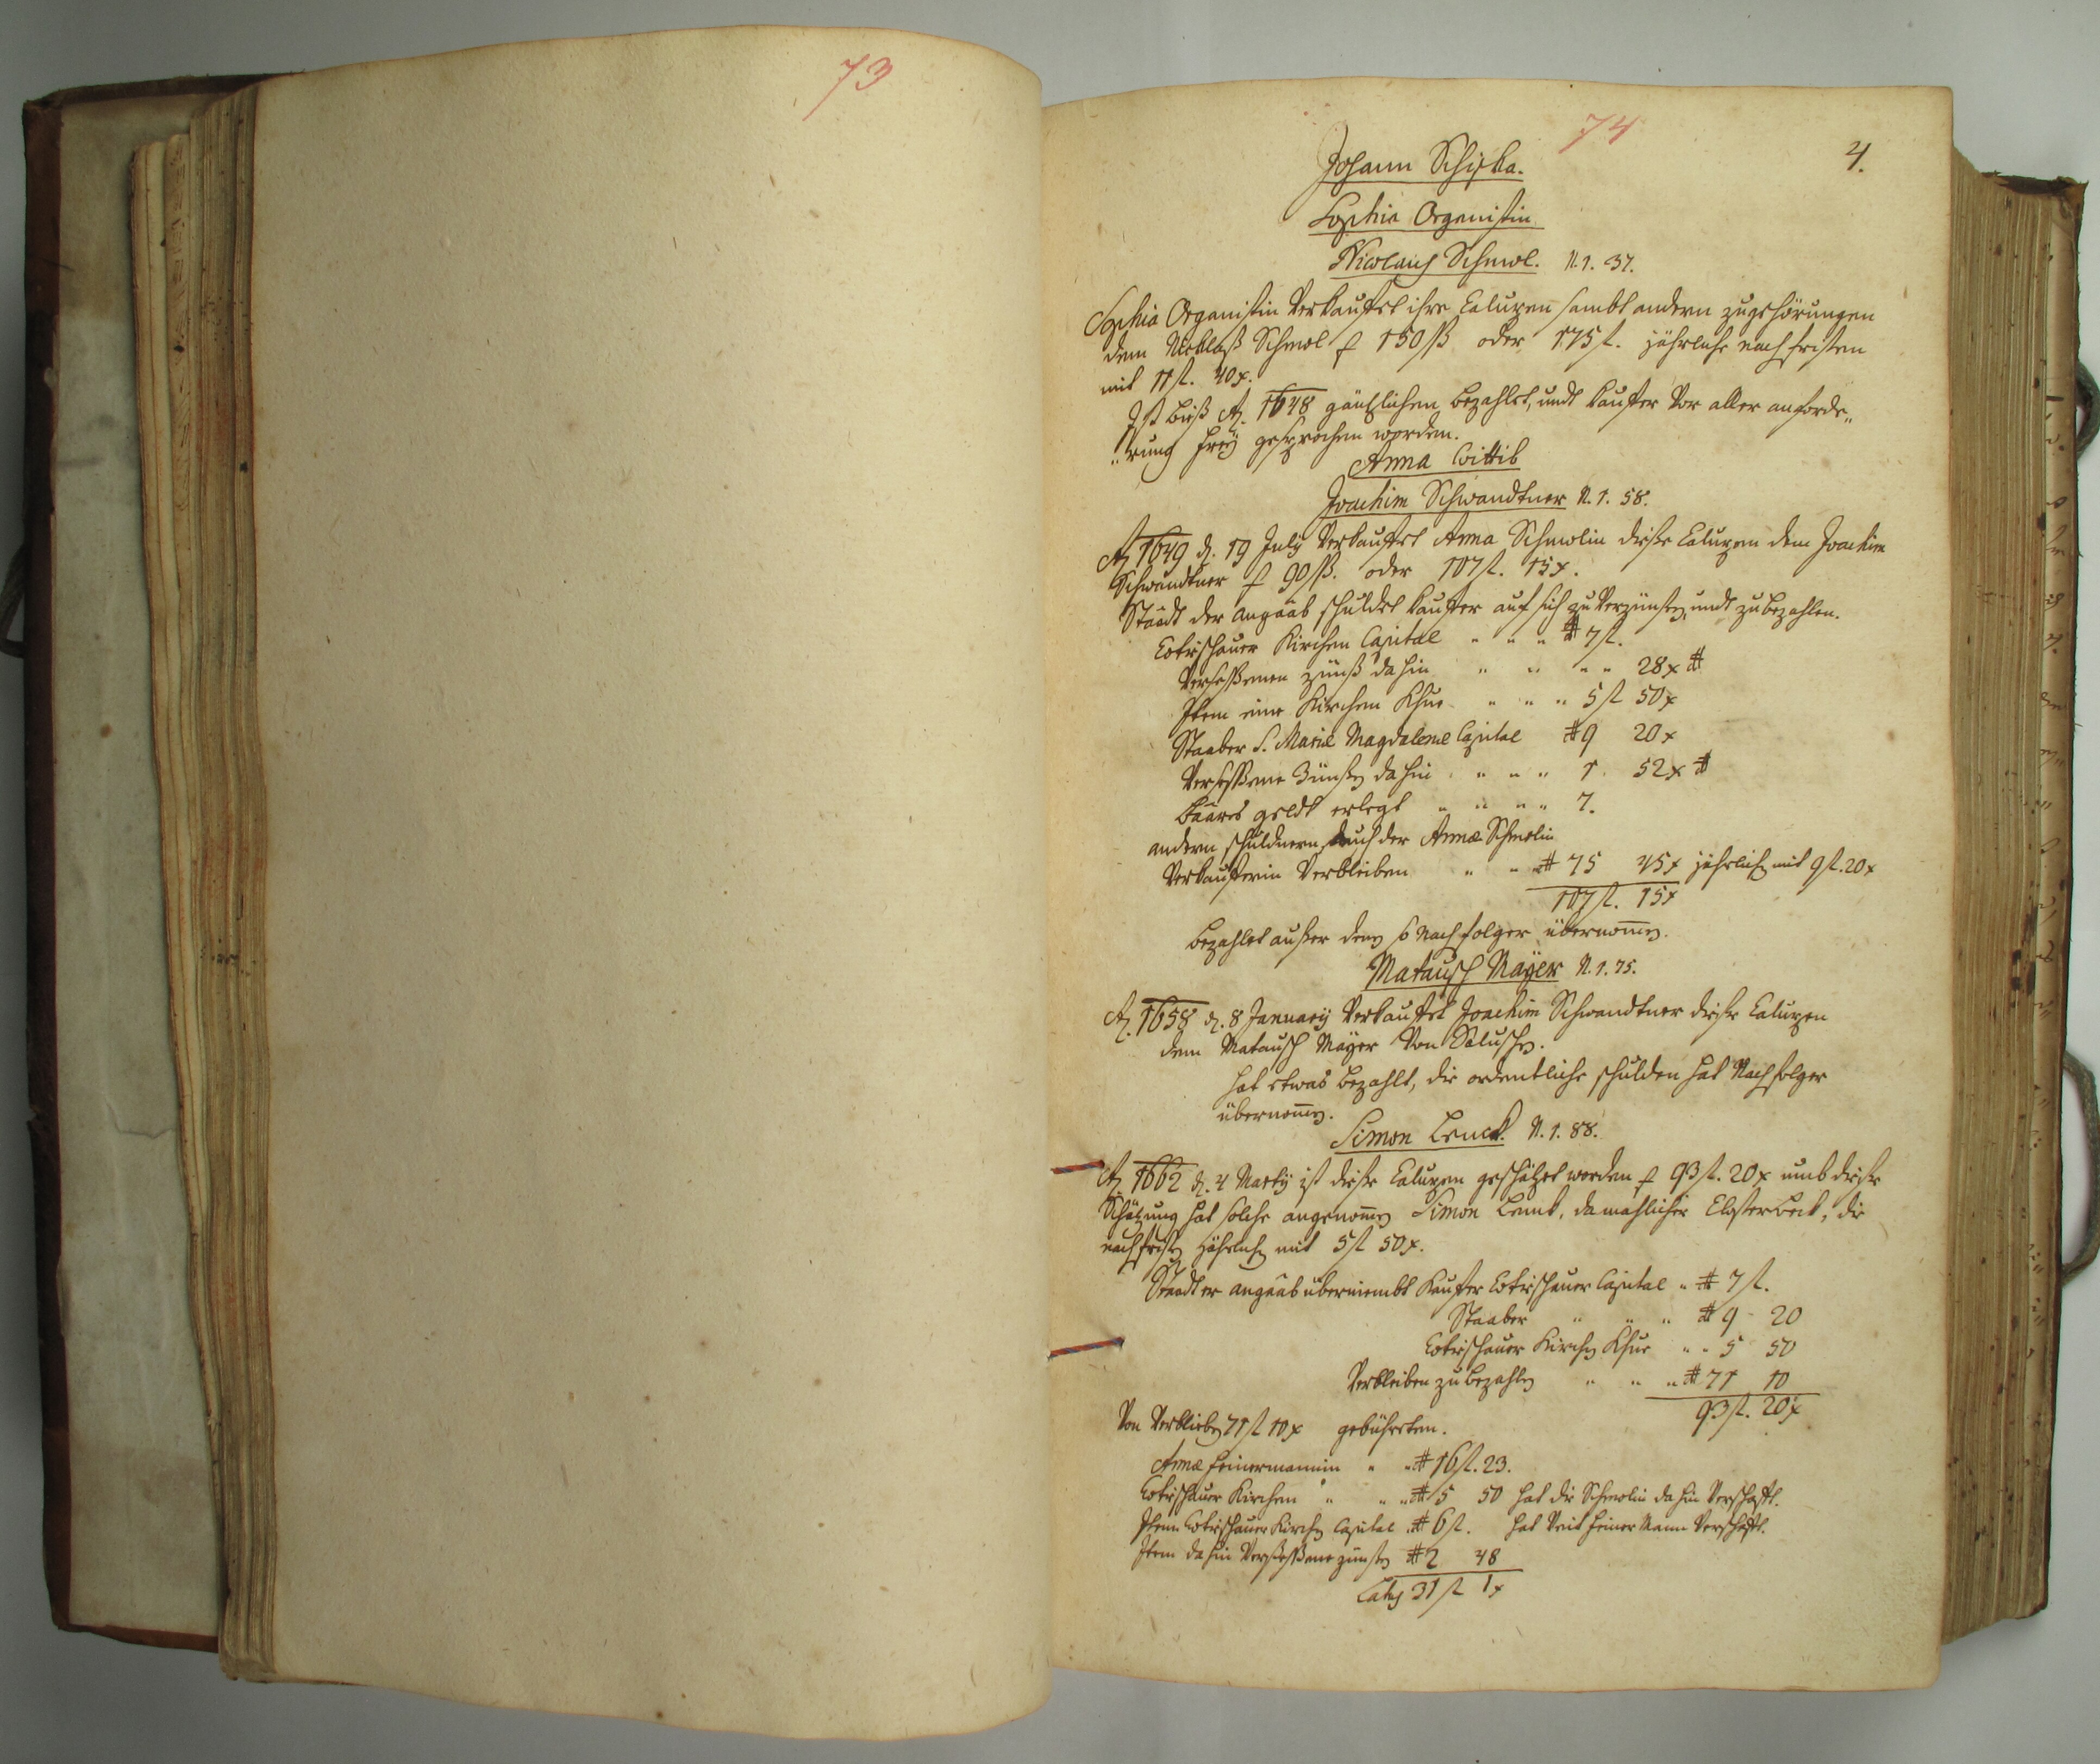 73
74
4.
Johann Schiska.
Sophia Organistin
Nicolaus Schmol. N. 1. 37.
Sophia Organistin Verkauffet ihre Caluzen sambt andern zugehörungen
dem Nicklaß Schmol p 150 ß oder 175 fl. jährliche nachfristen
mit 11 fl. 40 x.
Ist biß Ao. 1648 gäntzlichen bezahlet, undt Kauffer Vor aller anforde„
„rung freÿ gesprochen worden.
Anna Wittib
Joachim Schwandtner N. 1. 58.
Ao 1649 d. 19 July Verkauffet Anna Schmolin diese Caluzen dem Joachim
Schwandtner p 90 ß. oder 107 fl. 15 x.
Stadt der angaab schuldet Kauffer auf sich zu Verzünßen, undt zu bezahlen.
Kirchen Capital „ „ „ # 7 fl.
Versessenen zünß dahin „ „ „ „ 28 x #
Item eine Kirchen Khue „ „ „ 5 fl 50 x
Staaber S. Mariæ Magdalenæ Capital # 9 20 x
Versessene Zünßen dahin „ „ „ 1. 52 x #
Baares geldt erlegt „ „ „ „ 7.
andern schuldnern, auch der Annæ Schmolin
Verkaufferin Verbleiben „ „ # 75 45 x jährlich mit 9 fl. 20 x
107 fl. 15 x
bezahlet außer deme so Nachfolger übernommen.
Matausch Mayer N. 1. 75.
Ao. 1658 d. 8 January Verkauffet Joachim Schwandtner diese Caluzen
dem Matausch Mayer Von
hat etwas bezahlt, die ordentliche schulden hat Nachfolger
übernommen.
Simon Lenck. N. 1. 88.
Ao 1662 d. 4 Marty ist diese Caluzen geschätzet worden p 93 fl. 20 x umb diese
Schätzung hat solche angenommen Simon Lenck, damahlicher die
nachfristen jährlich mit 5 fl 50 x.
Stadt der angaab übernimbt Kauffer Capital „ # 7 fl.
Staaber „ „ „ # 9 - 20
Kirchen Khue „ „ 5 50
Verbleiben zu bezahlen „ „ „ # 71 10
93 fl. 20 x
Von Verbliebenen 71 fl 10 x gebührten.
Annæ „ „ # 16 fl. 23.
Kirchen „ „ „ # 5 50 hat die Schmolin dahin Verschafft.
Item Kirchen Capital # 6 fl. hat Veit Verschafft.
Item dahin Versessene zünßen # 2 48
Latus 31 fl 1 x